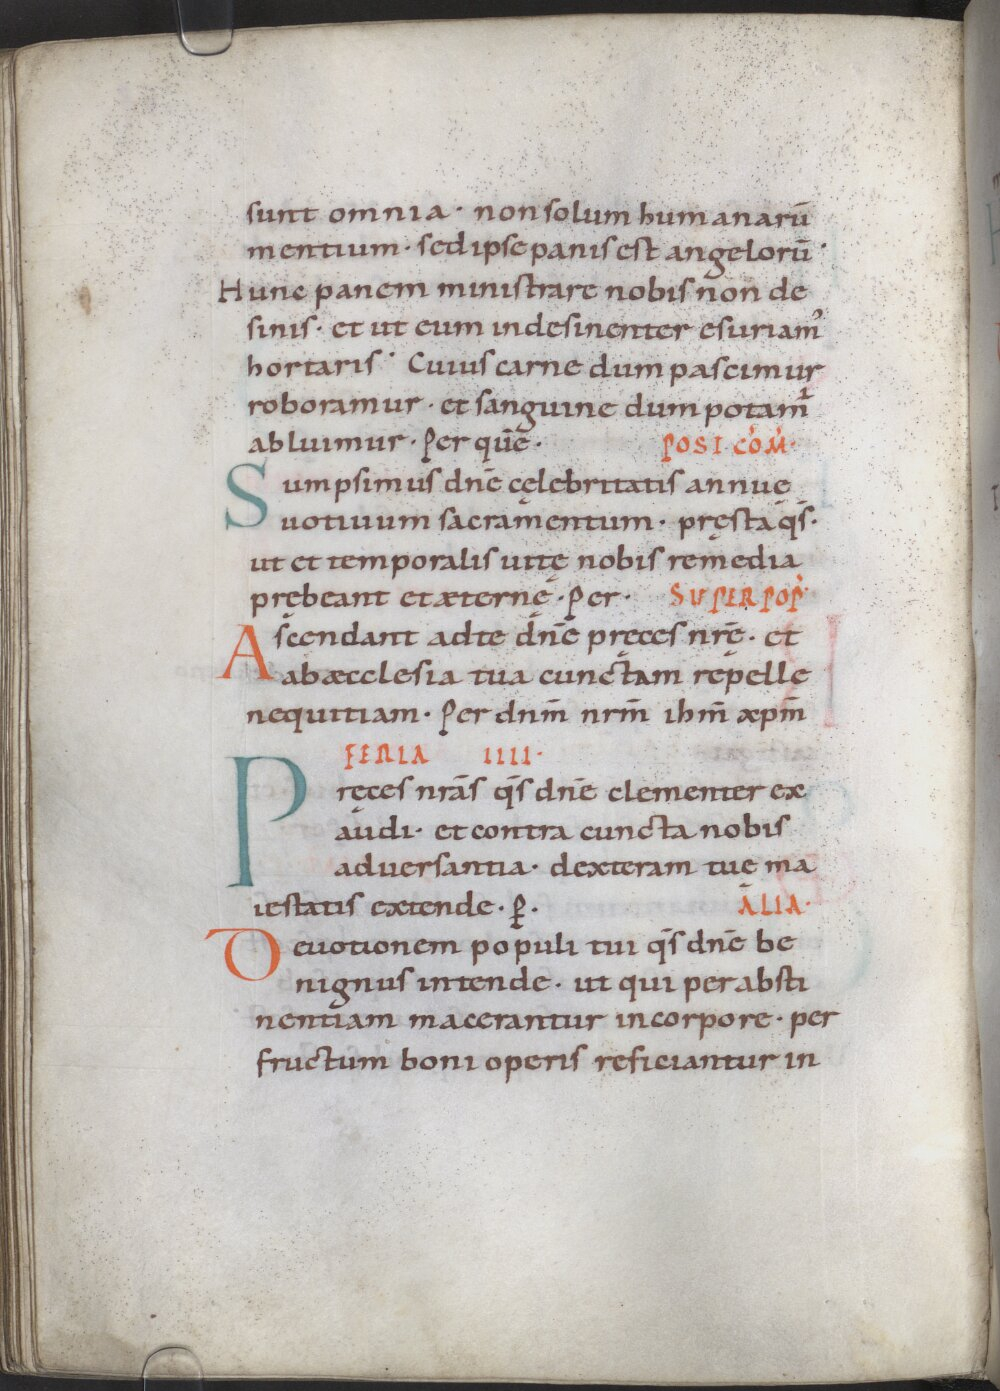 sunt omnia · non solum humanarū
mentium · sed ipse panis est angelorū ·
Hunc panem ministrare nobis non de
sinis · et ut eum indesinenter esuriam᾽
hortaris · Cuius carne dum pascimur
roboramur · et sanguine dum potamur
abluimur · Per quē · POST CO᾽M᾽ ·
Sumpsimus dnē cęlebritatis annuę
uotiuum sacramentum · pręsta qs̄ ·
ut et temporalis uitę nobis remedia
prębeant et æternę · Per · SUPER POP᾽
Ascendant ad te dnē pręces nrę̄ · et
ab æcclesia tua cunctam repelle
nequitiam · Per dnm̄ nrm̄ ihm̄ xpm̄
FERIA IIII ·
Pręces nrās qs̄ dnē clementer ex
audi · et contra cuncta nobis
aduersantia · dexteram tuę ma
iestatis extende · P̄ · ALIA ·
Deuotionem populi tui qs̄ dnē be
nignus intende · ut qui per absti
nentiam macerantur in corpore · per
fructum boni operis reficiantur in